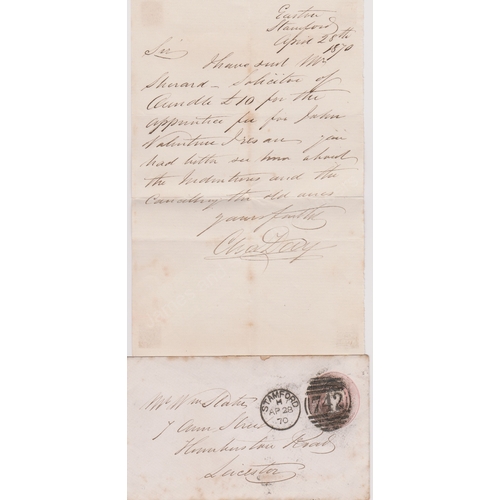 Easton
Stamford
April 28th
1870
Sir
I have sent Mr
Sherard - Solicitor of
Oundle £10 for the
apprentice fee for John
Valentine you
had better see him about
the Indentures and the
Cancelling the old ones
yours faithly
Chas Day
Mr Wm Slater
7 Ann Street
Humberstone Road
Leicester
STAMFORD
H
AP 28
70
742